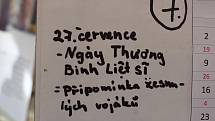 7.
27. července
- Ngày Thương
Binh Liệt sĩ
= Připomínka zesnu-
lých vojáků
2
19
9
16
23